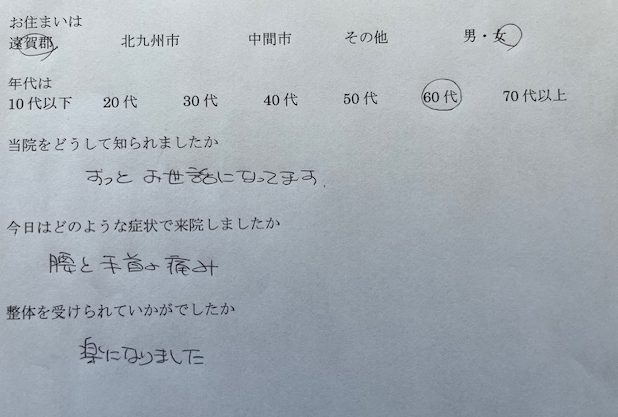 お住まいは
遠賀郡 北九州市 中間市 その他 男・女
年代は
10代以下 20代 30代 40代 50代 60代 70代以上
当院をどうして知られましたか
ずっとお世話になってます.
今日はどのような症状で来院しましたか
腰と手首の痛み
整体を受けられていかがでしたか
楽になりました